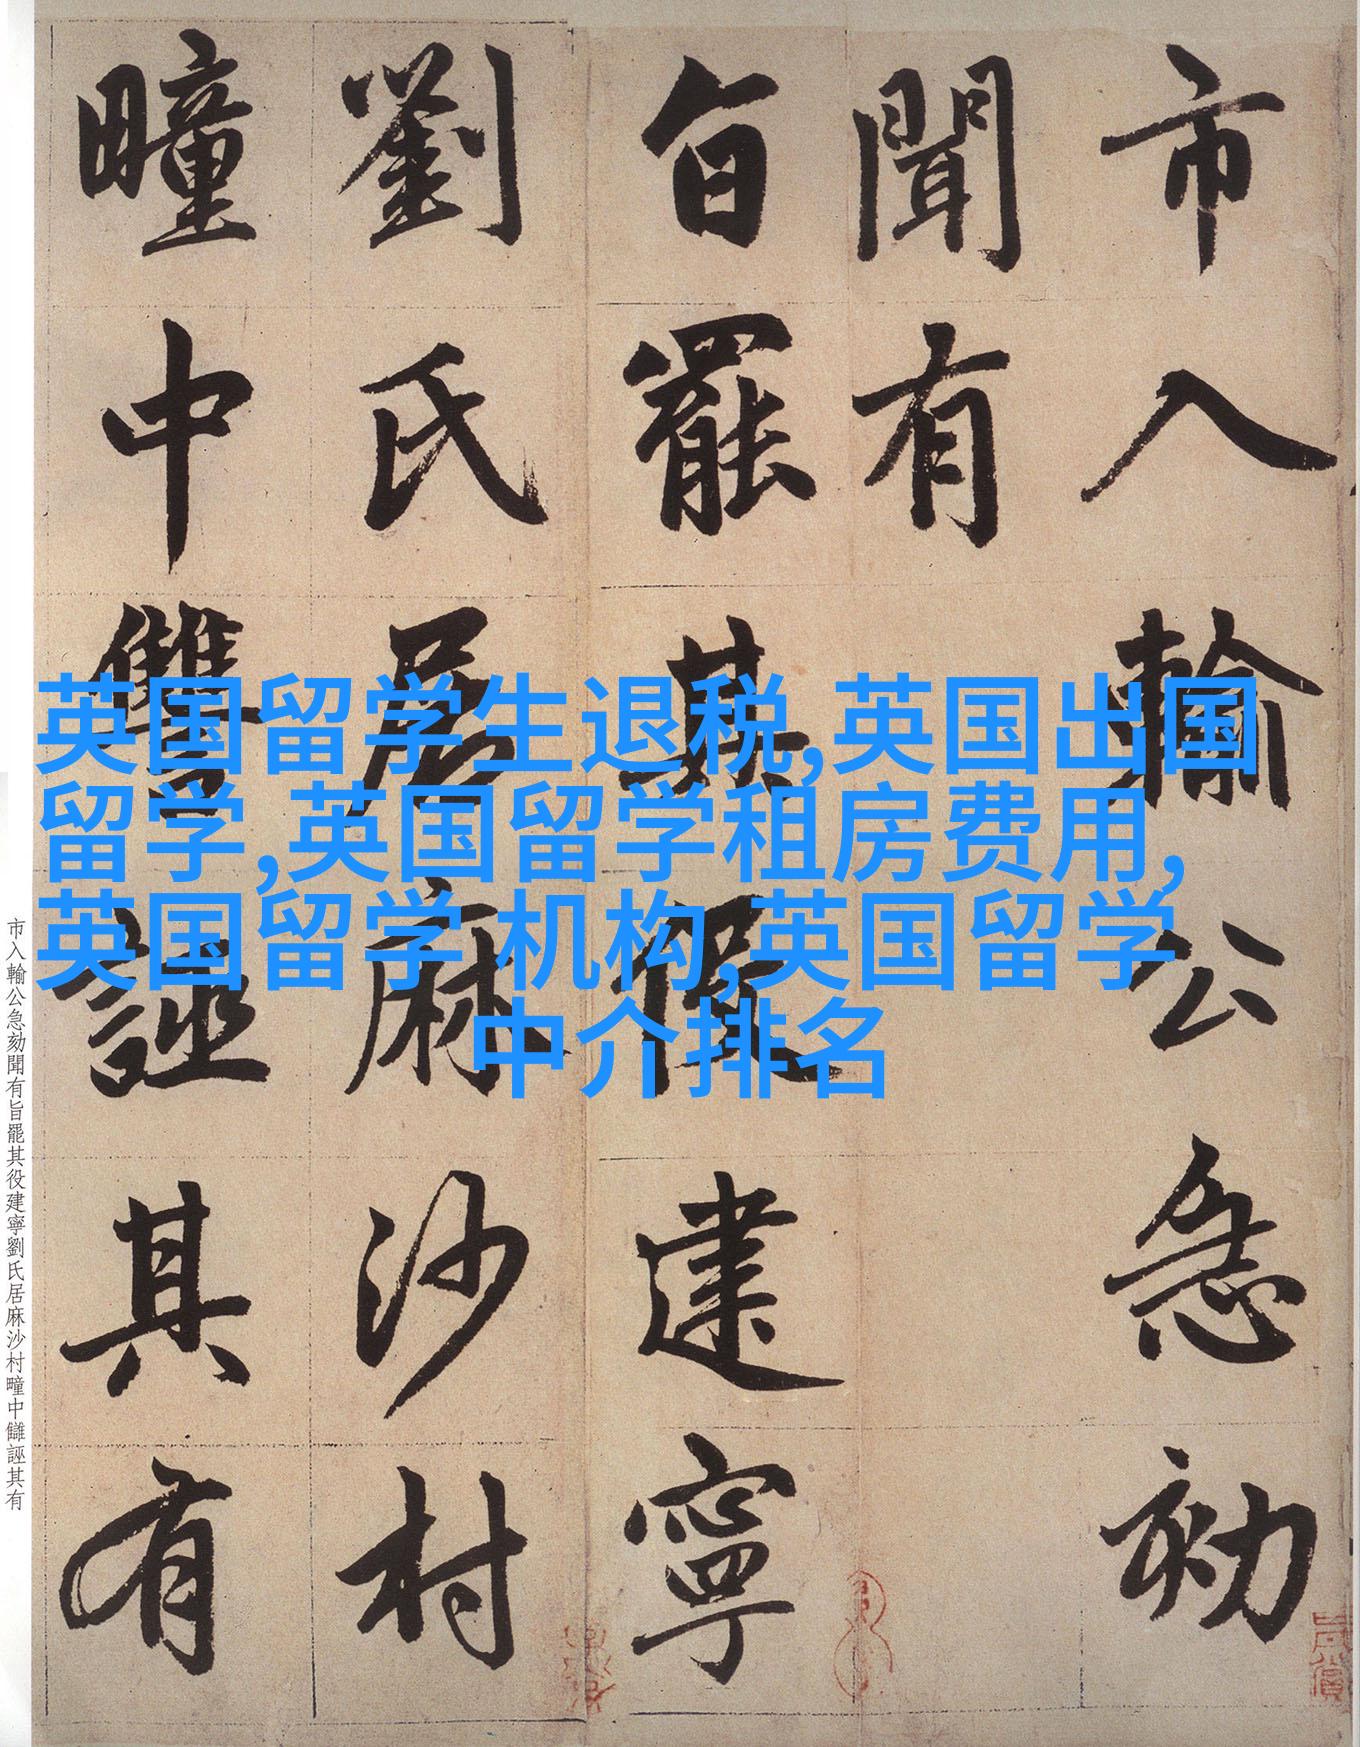 市入輸公急劾
聞有
旨罷其役建寧
劉氏居麻沙村
疃中讐誣其有
英国留学生退税,英国出国
留学,英国留学租房费用,
英国留学 机构,英国留学
中介排名
市入輸公急劾聞有旨罷其役建寧劉氏居麻沙村疃中讎誣其有